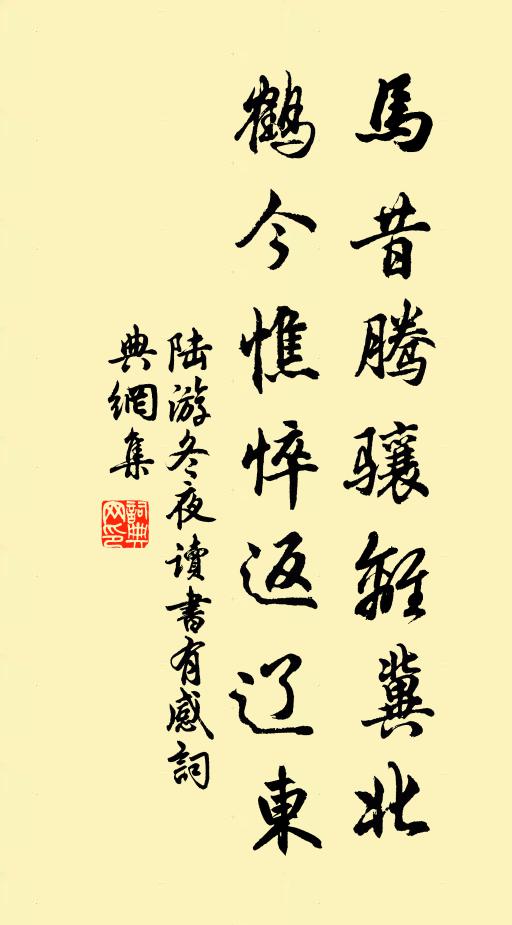 馬昔腾驤離冀北
鶴今憔悴返辽東
陆游冬夜讀書有感詞
典網集
詞典网印